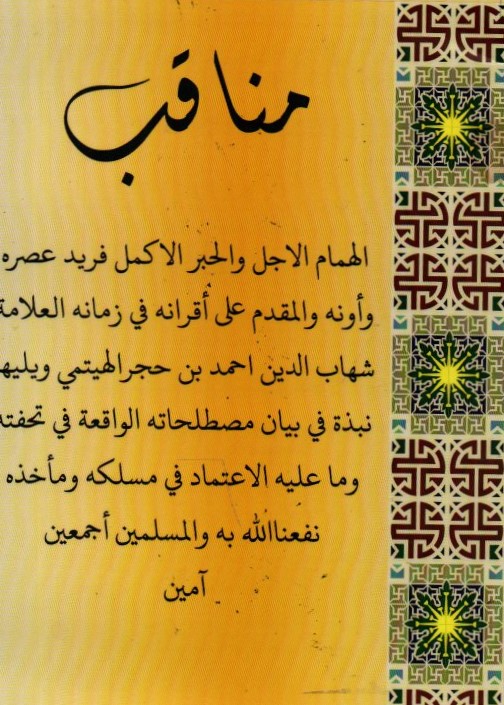 مناقب
الهمام الاجل والحبر الاكمل فريد عصره
وأونه والمقدم على أقرانه في زمانه العلامة
شهاب الدين احمد بن حجر الهيتمي ويليه
نبذة في بيان مصطلحاته الواقعة في تحفته
وما عليه الاعتماد في مسلكه ومأخذه
نفعناالله به والمسلمين أجمعين
آمين